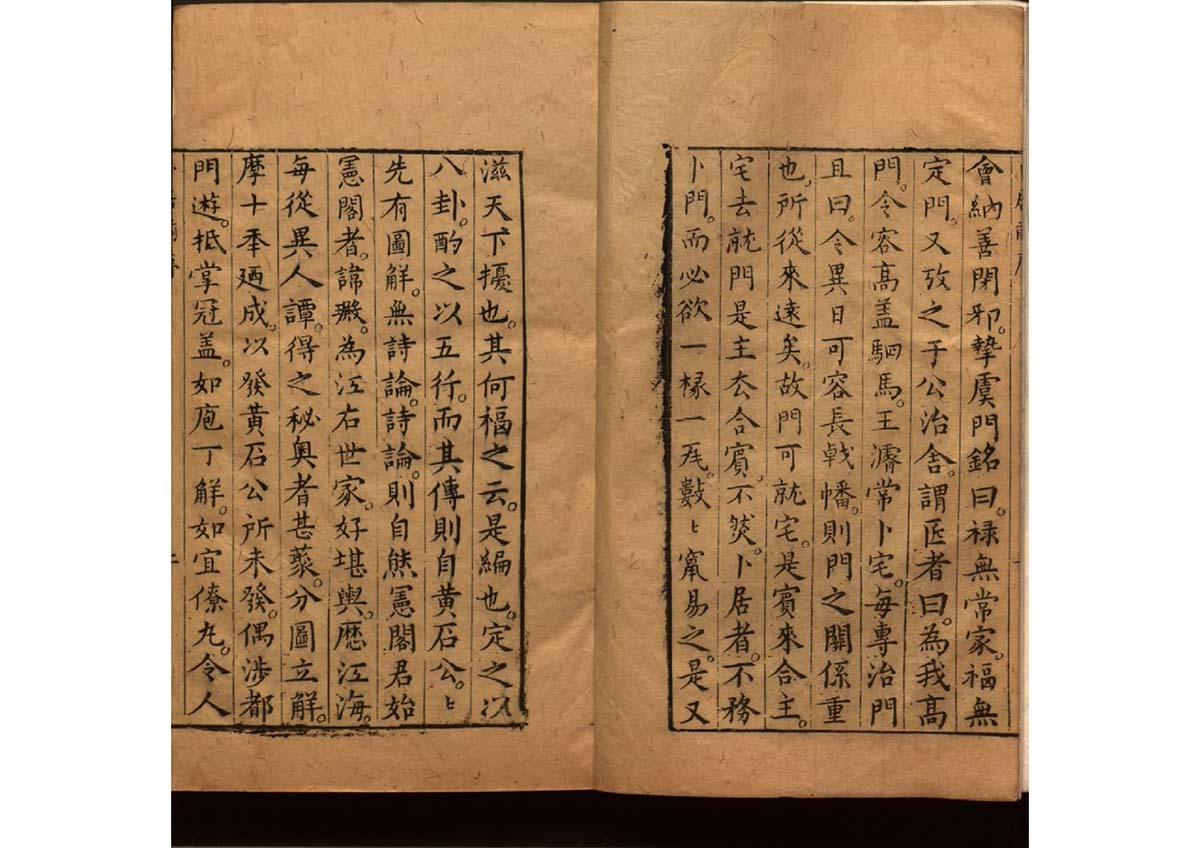 會納善閉邪。摯虞門銘曰。禄無常家。福無
定門。又攷之于公治舍。謂匠者曰。為我高
門。令容高盖駟馬。王濬常卜宅。每專治門
且曰。令異日可容長戟幡。則門之關係重
也。所從来逺矣。故門可就宅。是賔來合主。
宅去就門是主去合賔。不然。卜居者。不務
卜門。而必欲一椽一瓦。數〻窜易之。是又
滋天下擾也。其何福之云。是編也。定之以
八卦。酌之以五行。而其傳則自黄石公。〻
先有圖解。無詩論。詩論。則自熊憲閣君始
憲閣者。諱㺉。為江右世家。好堪輿。歷江海。
每從異人譚。得之秘奥者甚夥。分圖立解。
摩十年廼成。以發黄石公所未發。偶涉都
門遊。抵掌冠盖。如庖丁解。如宜僚丸。令人